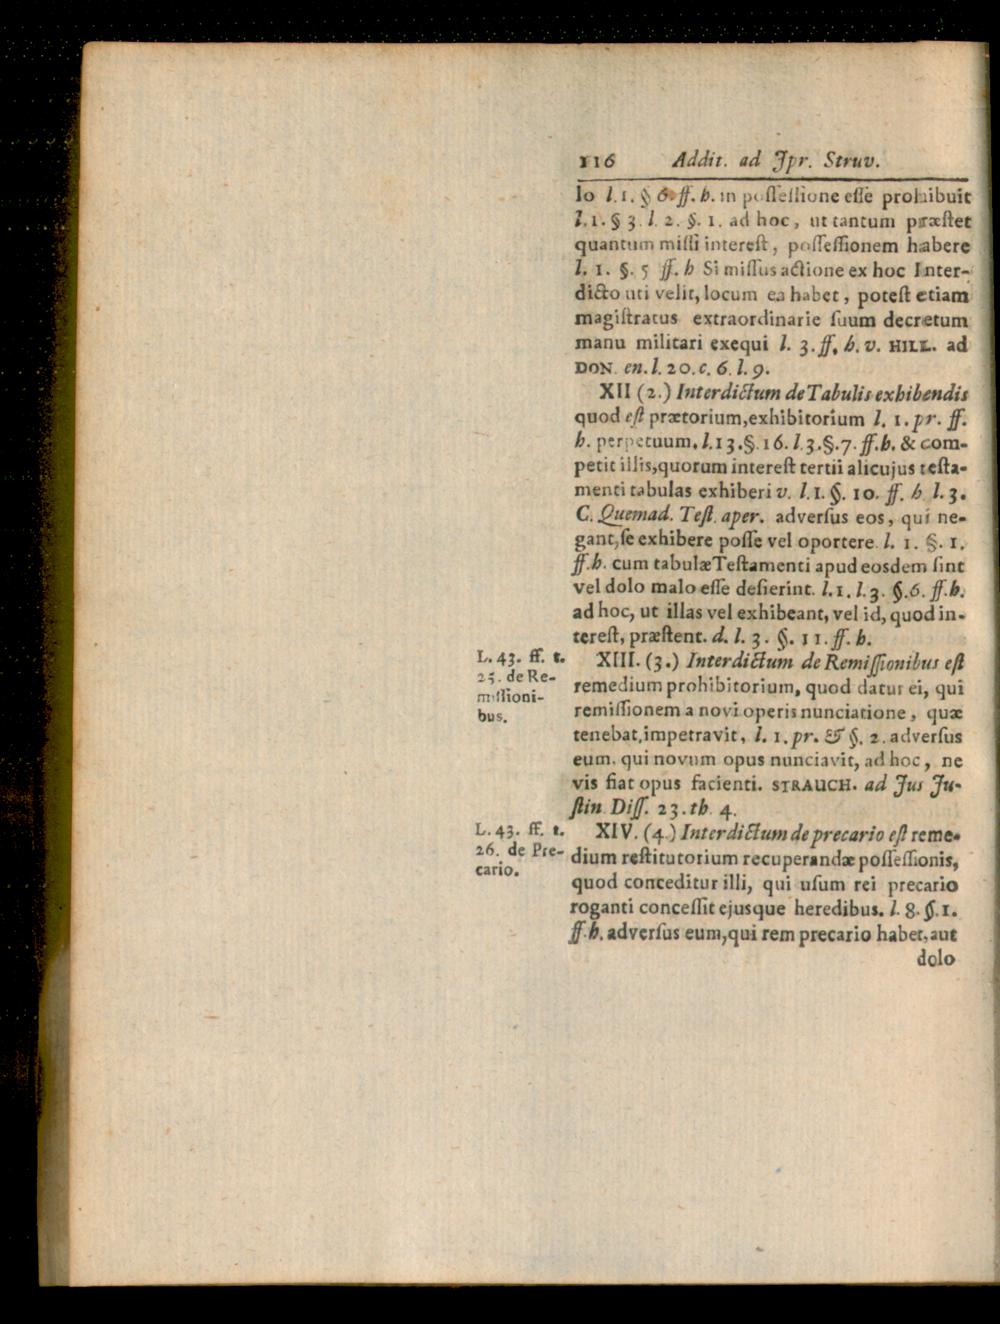 116 Addit. ad Jpr. Struv.
lo l. 1. § 6. ff. h. in poſſeſſione eſſe prohibuit
l. 1. § 3. l. 2. §. 1. ad hoc, ut tantum præſtet
quantum miſſi intereſt, poſſeſſionem habere
l. 1. §. 5 ff. h Si miſſus actione ex hoc Inter-
dicto uti velit, locum ea habet, poteſt etiam
magiſtratus extraordinarie ſuum decretum
manu militari exequi l. 3. ff. h. v. HILL. ad
DON. en. l. 20. c. 6. l. 9.
XII (2.) Interdictum de Tabulis exhibendis
quod eſt prætorium, exhibitorium l. 1. pr. ff.
h. perpetuum. l. 13. §. 16. l. 3. §. 7. ff. h. & com-
petit illis, quorum intereſt tertii alicujus teſta-
menti tabulas exhiberi v. l. 1. §. 10. ff. h l. 3.
C. Quemad. Teſt. aper. adverſus eos, qui ne-
gant, ſe exhibere poſſe vel oportere. l. 1. §. 1.
ff. h. cum tabulæ Teſtamenti apud eosdem ſint
vel dolo malo eſſe deſierint. l. 1. l. 3. §. 6. ff. h.
ad hoc, ut illas vel exhibeant, vel id, quod in-
tereſt, præſtent. d. l. 3. §. 11. ff. h.
L. 43. ff. t.
25. de Re-
miſſioni-
bus.
XIII. (3.) Interdictum de Remiſſionibus eſt
remedium prohibitorium, quod datur ei, qui
remiſſionem a novi operis nunciatione, quæ
tenebat, impetravit, l. 1. pr. & §. 2. adverſus
eum. qui novum opus nunciavit, ad hoc, ne
vis fiat opus facienti. STRAUCH. ad Jus Ju-
ſtin Diſſ. 23. th. 4.
L. 43. ff. t.
26. de Pre-
cario.
XIV. (4.) Interdictum de precario eſt reme-
dium reſtitutorium recuperandæ poſſeſſionis,
quod conceditur illi, qui uſum rei precario
roganti conceſſit ejusque heredibus. l. 8. §. 1.
ff. h. adverſus eum, qui rem precario habet, aut
dolo